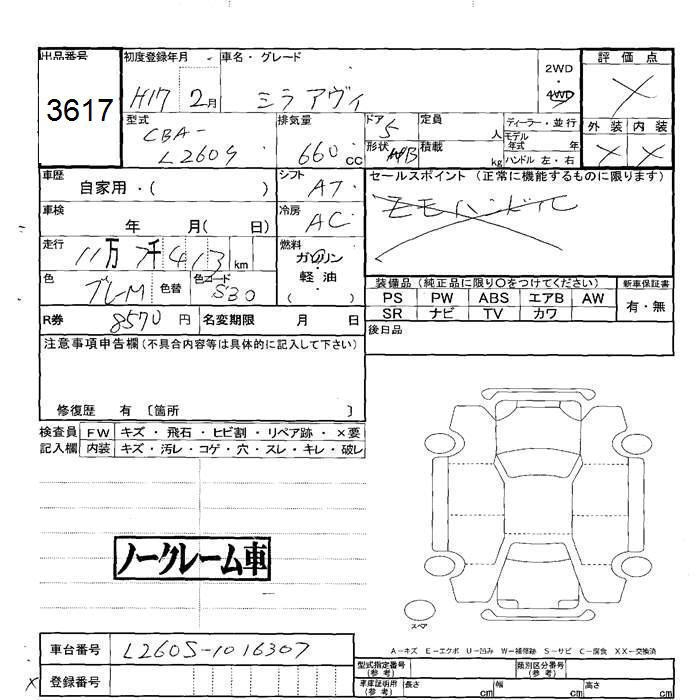 出品番号
3617
初度登録年月
H17 2月
車名・グレード
ミラアヴィ
2WD
・
4WD
評価点
×
外装 内装
× ×
型式
CBA-
L260S
排気量
660cc
ドア 5
形状 H/B
定員 人
積載 kg
ディーラー・並行
モデル
年式 年
ハンドル 左・右
車歴
自家用・( )
シフト
AT
セールスポイント (正常に機能するものに限ります)
車検
年 月( 日)
冷房
AC
走行
11万 千413km
燃料
ガソリン
・
軽油
( )
色
色替
色コード
S30
装備品 (純正品に限り○をつけてください)
PS PW ABS エアB AW
SR ナビ TV カワ
新車保証書
有・無
R券 8570円 名変期限 月 日
後日品
注意事項申告欄(不具合内容等は具体的に記入して下さい)
修復歴 有 〔箇所 〕
検査員
記入欄
FW キズ・飛石・ヒビ割・リペア跡・×要
内装 キズ・汚レ・コゲ・穴・スレ・キレ・破レ
ノークレーム車
スペア
A-キズ E-エクボ U-凹み W-補修跡 S-サビ C-腐食 XX-交換済
車台番号 L260S-1016307
× 登録番号
型式指定番号
(参考)
類別区分番号
(参考)
車庫証明用
(参考)
長さ cm 幅 cm 高さ cm